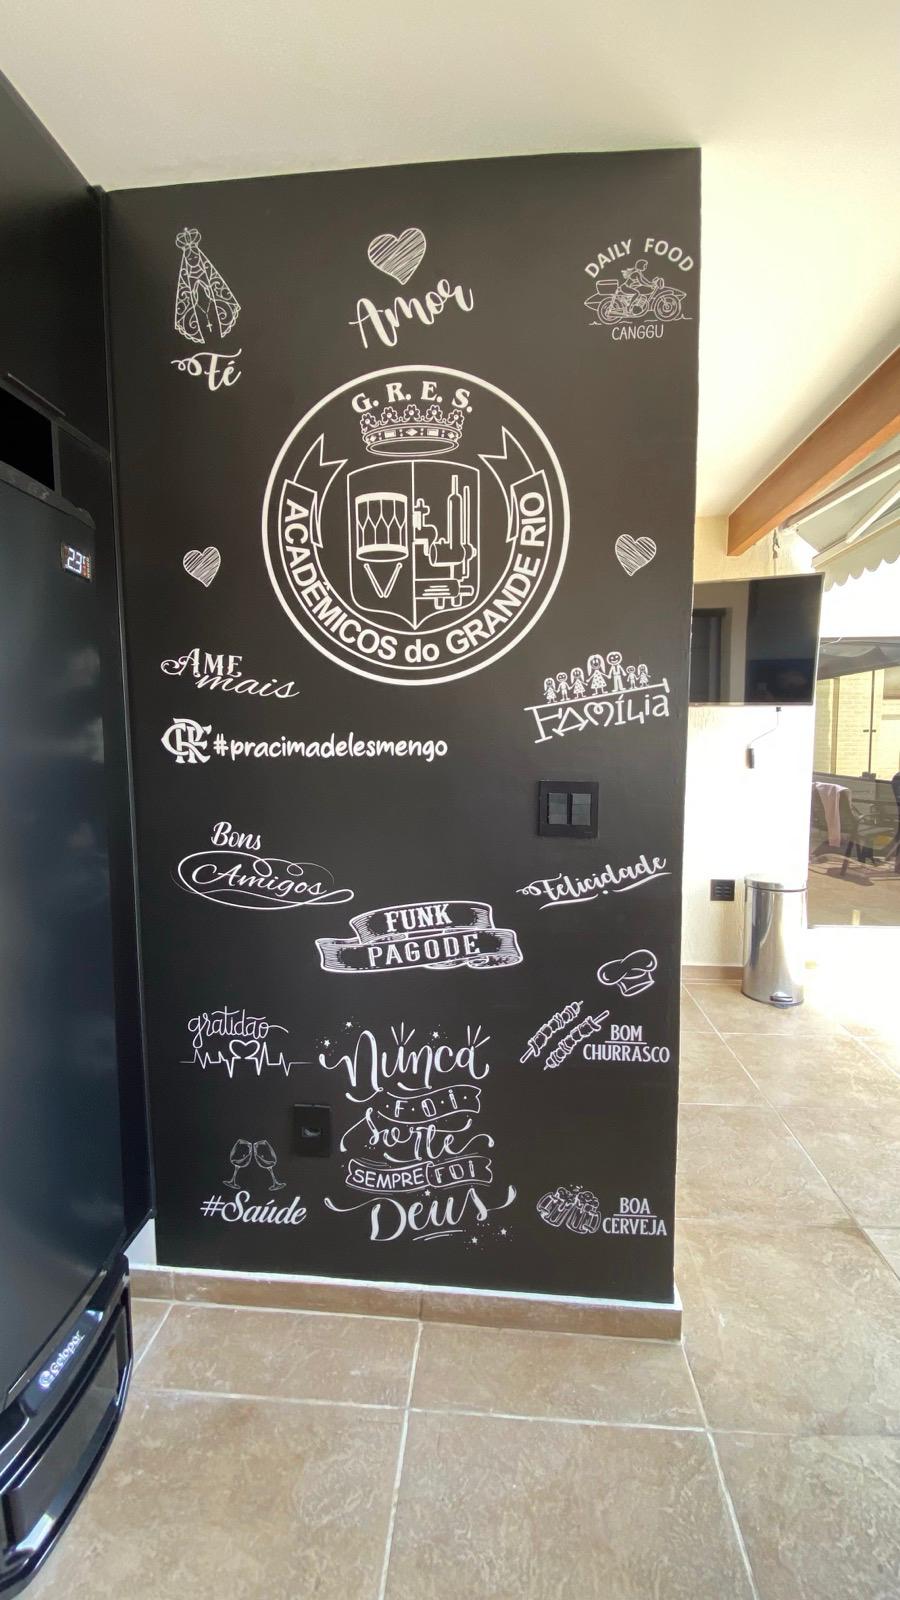 DAILY FOOD
CANGGU
Amor
Fé
G. R. E. S.
ACADÊMICOS do GRANDE RIO
2.3
AME
mais
FAMÍLIA
CRF #pracimadelesmengo
Bons
Amigos
Felicidade
FUNK
PAGODE
gratidão
BOM
CHURRASCO
Nunca
FOI
Sorte
SEMPRE FOI
Deus
#Saúde
BOA
CERVEJA
Gelopar